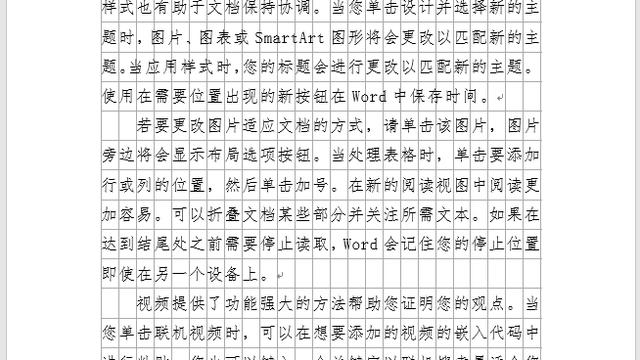 样式也有助于文档保持协调。当您单击设计并选择新的主
题时，图片、图表或 SmartArt 图形将会更改以匹配新的主
题。当应用样式时，您的标题会进行更改以匹配新的主题。
使用在需要位置出现的新按钮在 Word 中保存时间。
若要更改图片适应文档的方式，请单击该图片，图片
旁边将会显示布局选项按钮。当处理表格时，单击要添加
行或列的位置，然后单击加号。在新的阅读视图中阅读更
加容易。可以折叠文档某些部分并关注所需文本。如果在
达到结尾处之前需要停止读取，Word 会记住您的停止位置
即使在另一个设备上。
视频提供了功能强大的方法帮助您证明您的观点。当
您单击联机视频时，可以在想要添加的视频的嵌入代码中